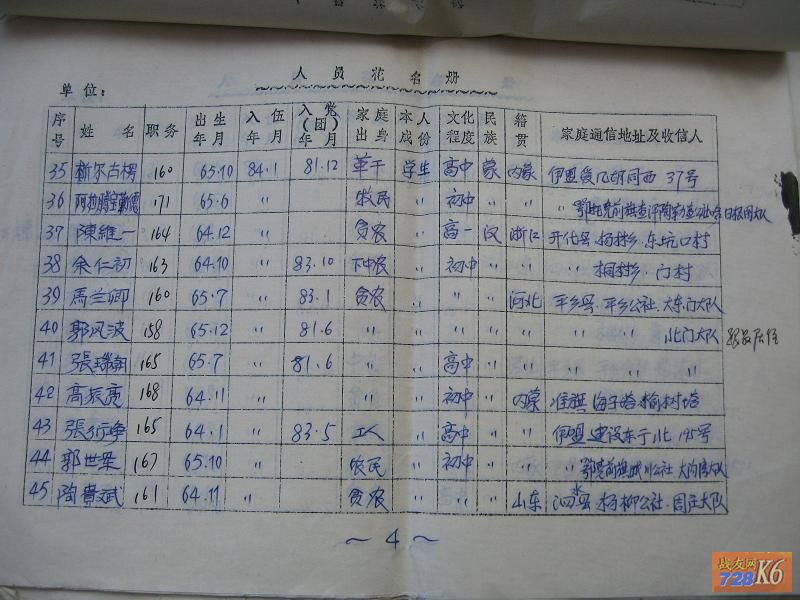 人员花名册
单位：
序号 姓名 职务 出生年月 入伍年月 入党(团)年月 家庭出身 本人成份 文化程度 民族 籍贯 家庭通信地址及收信人
35 新尔古楞 160 65.10 84.1 81.12 革干 学生 高中 蒙 内蒙 伊盟 胡同西 37号
36 171 65.6 〃 牧民 〃 初中 〃 〃 〃
37 陳維一 164 64.12 〃 贫农 〃 高一 汉 浙江 开化县 杨村乡 东坑口村
38 余仁初 163 64.10 〃 83.10 下中农 〃 初中 〃 〃 〃 桐村乡 门村
39 馬兰卿 160 65.7 〃 83.1 贫农 〃 〃 〃 河北 平乡县 平乡公社 大东门大队
40 郭风波 158 65.12 〃 81.6 〃 〃 〃 〃 〃 〃 〃 北门大队
41 張瑞朝 165 65.7 〃 81.6 〃 〃 高中 〃 〃 〃 〃 〃
42 高振亮 168 64.11 〃 〃 〃 初中 〃 内蒙 准旗 海子塔 榆树塔
43 張行峥 165 64.1 〃 83.5 工人 〃 高中 〃 〃 伊盟 建设东于北 195号
44 郭世荣 167 65.10 〃 农民 〃 初中 〃 〃 〃 公社
45 陶貴斌 161 64.11 〃 贫农 〃 〃 〃 山东 泗水县 杨柳公社 周庄大队
～4～
战友网
728K6